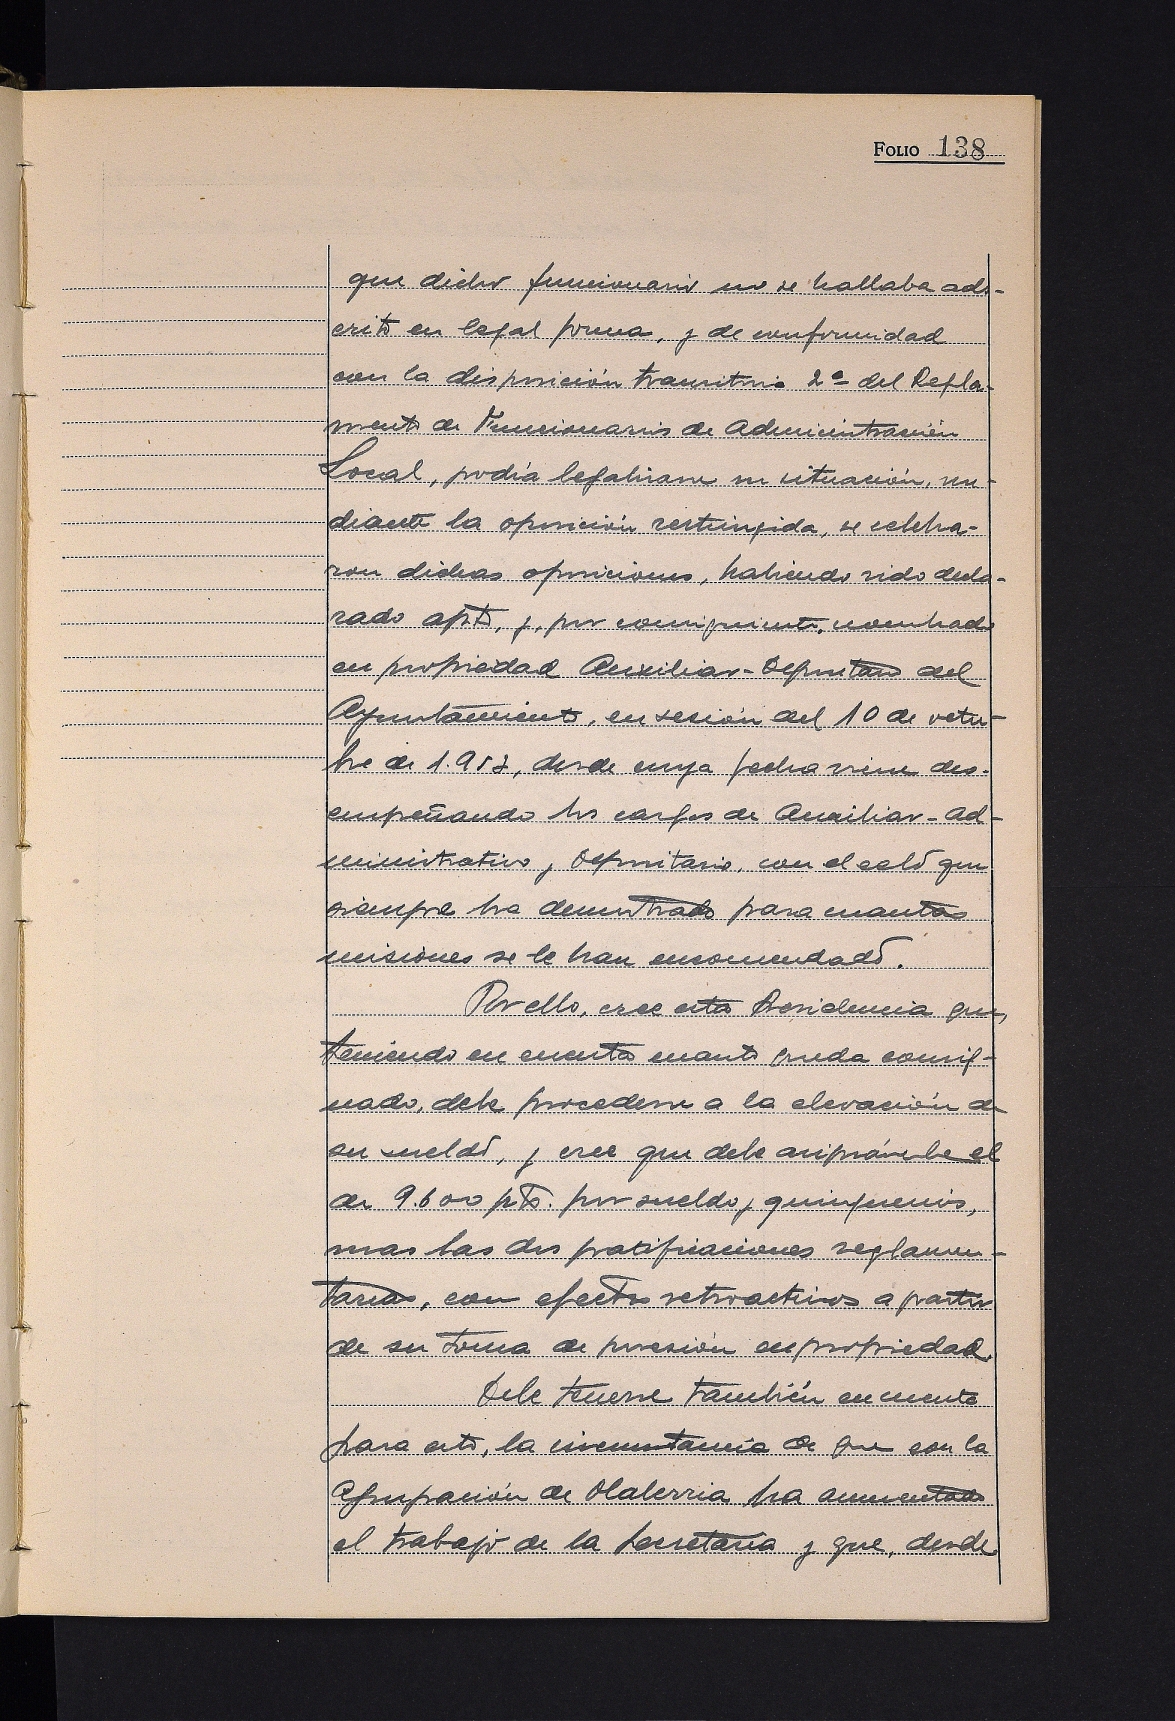 FOLIO 138
que dicho funcionario no se hallaba ads-
crito en legal forma, y de conformidad
con la disposición transitoria 2ª del Regla-
mento de Funcionarios de Administración
Local, podía legalizarse su situación, me-
diante la oposición restringida, se celebra-
ron dichas oposiciones, habiendo sido decla-
rado apto, y, por consiguiente, nombrado
en propiedad Auxiliar-Depositario del
Ayuntamiento, en sesión del 10 de octu-
bre de 1.953, desde cuya fecha viene des-
empeñando los cargos de Auxiliar-Ad-
ministrativo y Depositario, con el celo que
siempre ha demostrado para cuantas
misiones se le han encomendado.
Por ello, cree esta Presidencia que,
teniendo en cuenta cuanto queda consig-
nado, debe procederse a la elevación de
su sueldo, y cree que debe asignársele el
de 9.600 pts. por sueldo y quinquenios,
mas las dos gratificaciones reglamen-
tarias, con efectos retroactivos a partir
de su toma de posesión en propiedad.
Debe tenerse también en cuenta
para esto, la circunstancia de que con la
Agrupación de Olaberria ha aumentado
el trabajo de la Secretaria y que, desde